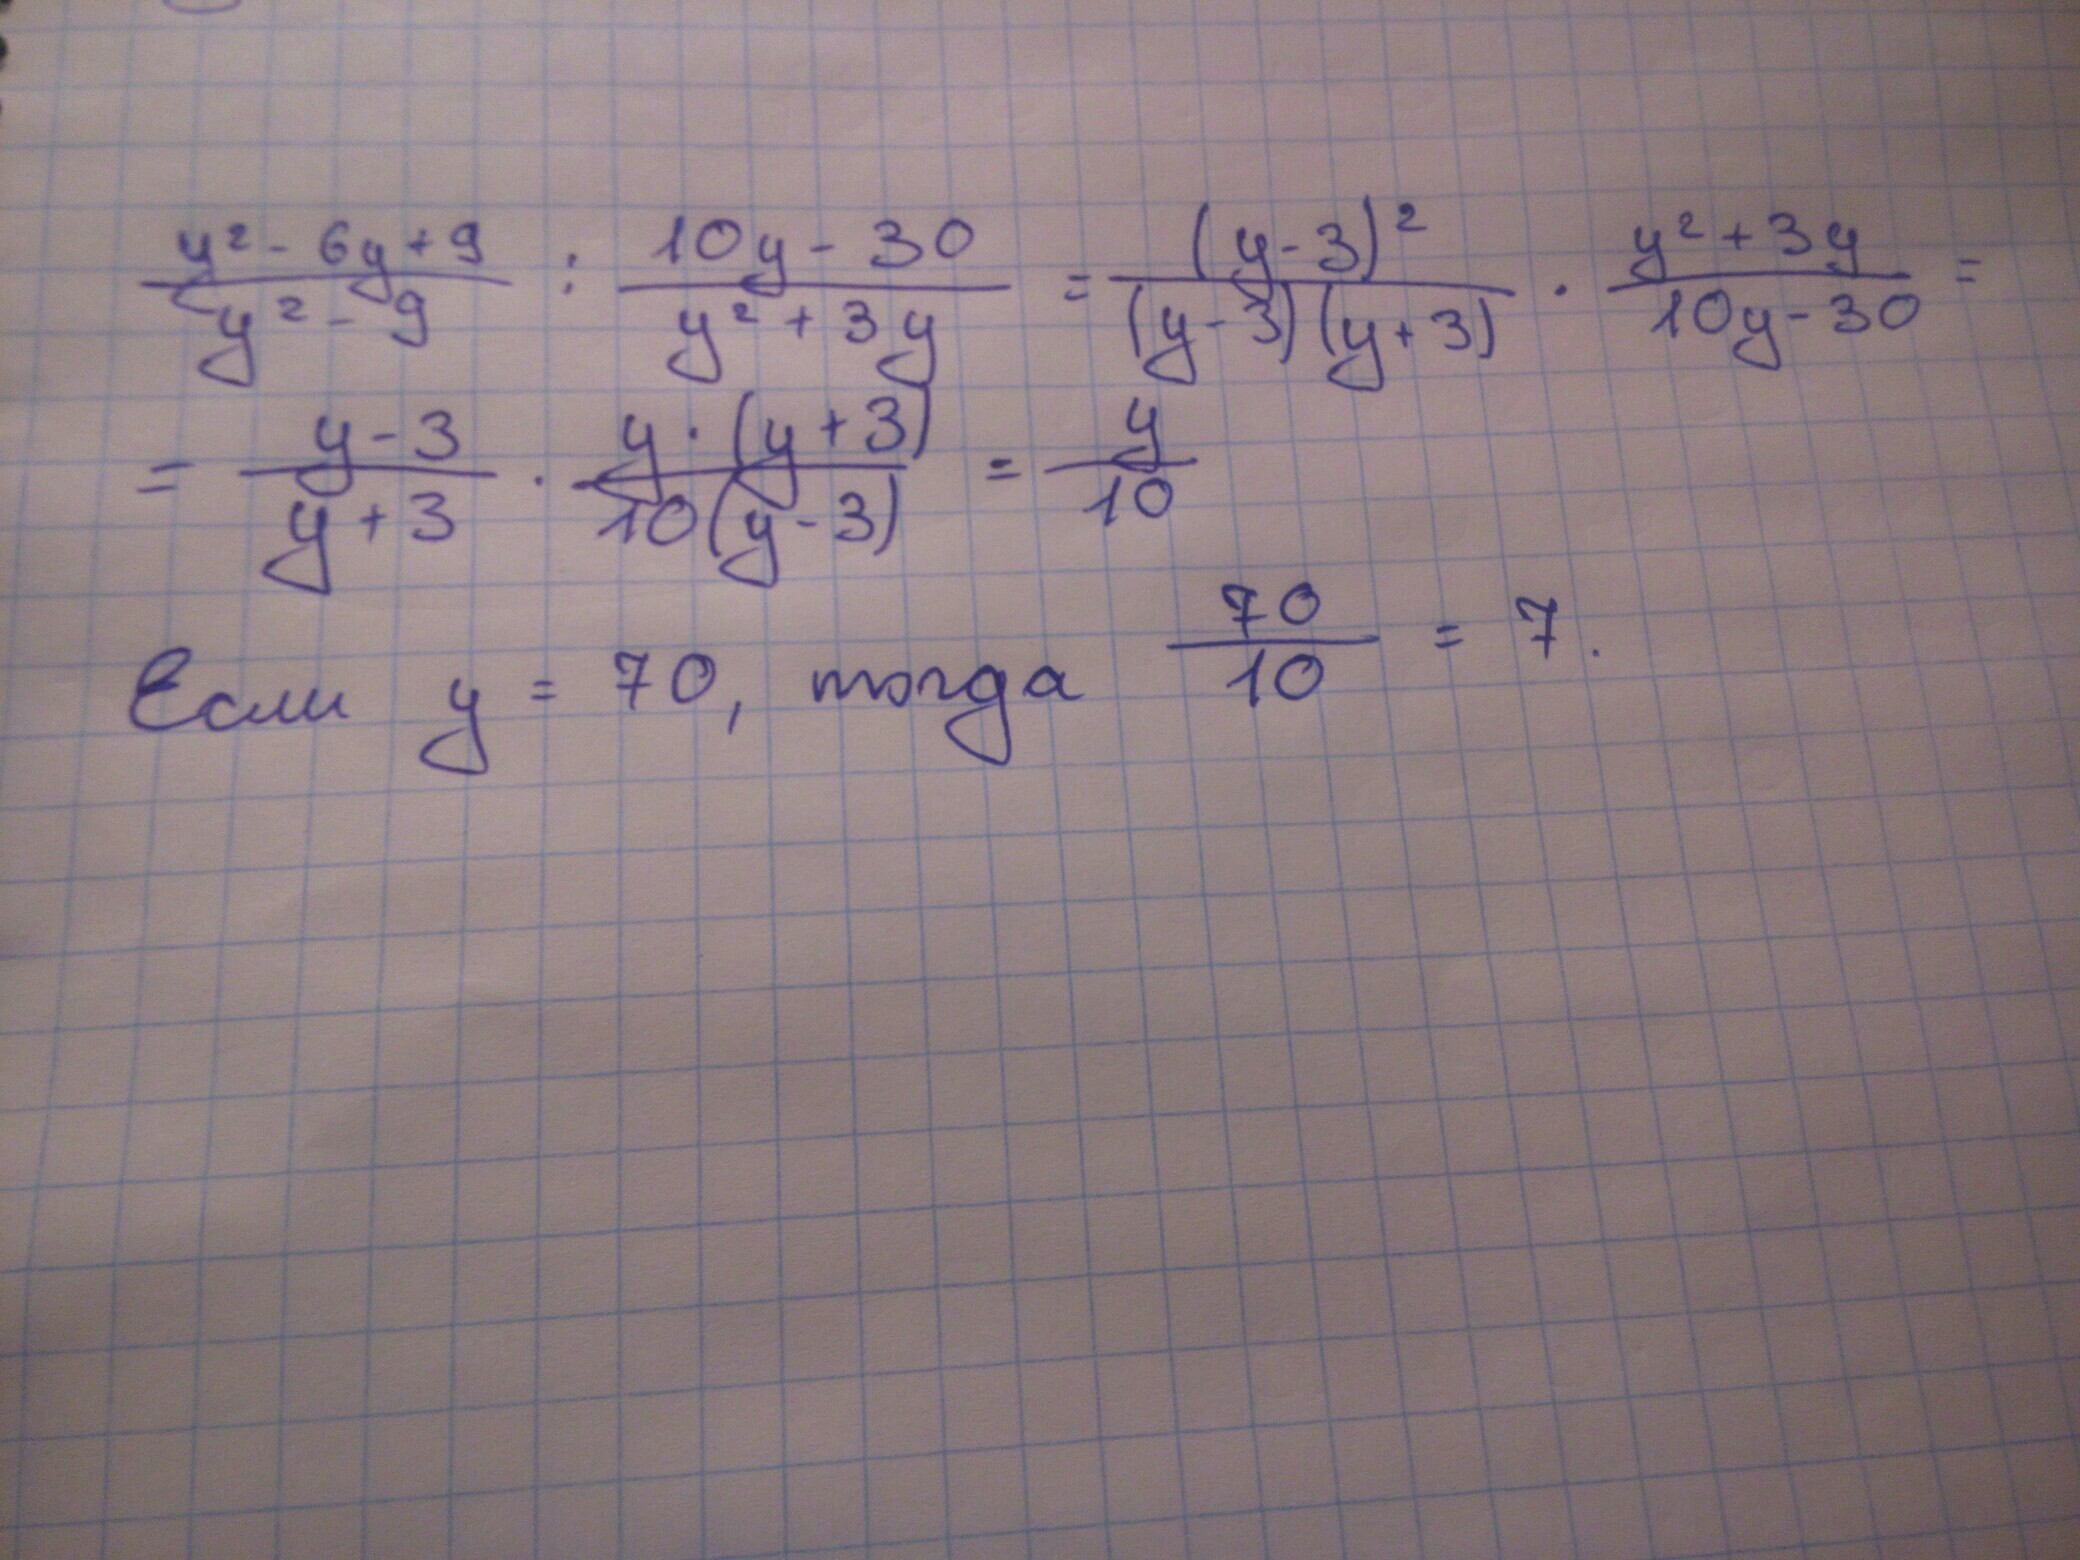 (y² - 6y + 9)/(y² - 9) : (10y - 30)/(y² + 3y) = (y - 3)²/((y - 3)(y + 3)) · (y² + 3y)/(10y - 30) =
= (y - 3)/(y + 3) · (y · (y + 3))/(10(y - 3)) = y/10
Если y = 70, тогда 70/10 = 7.